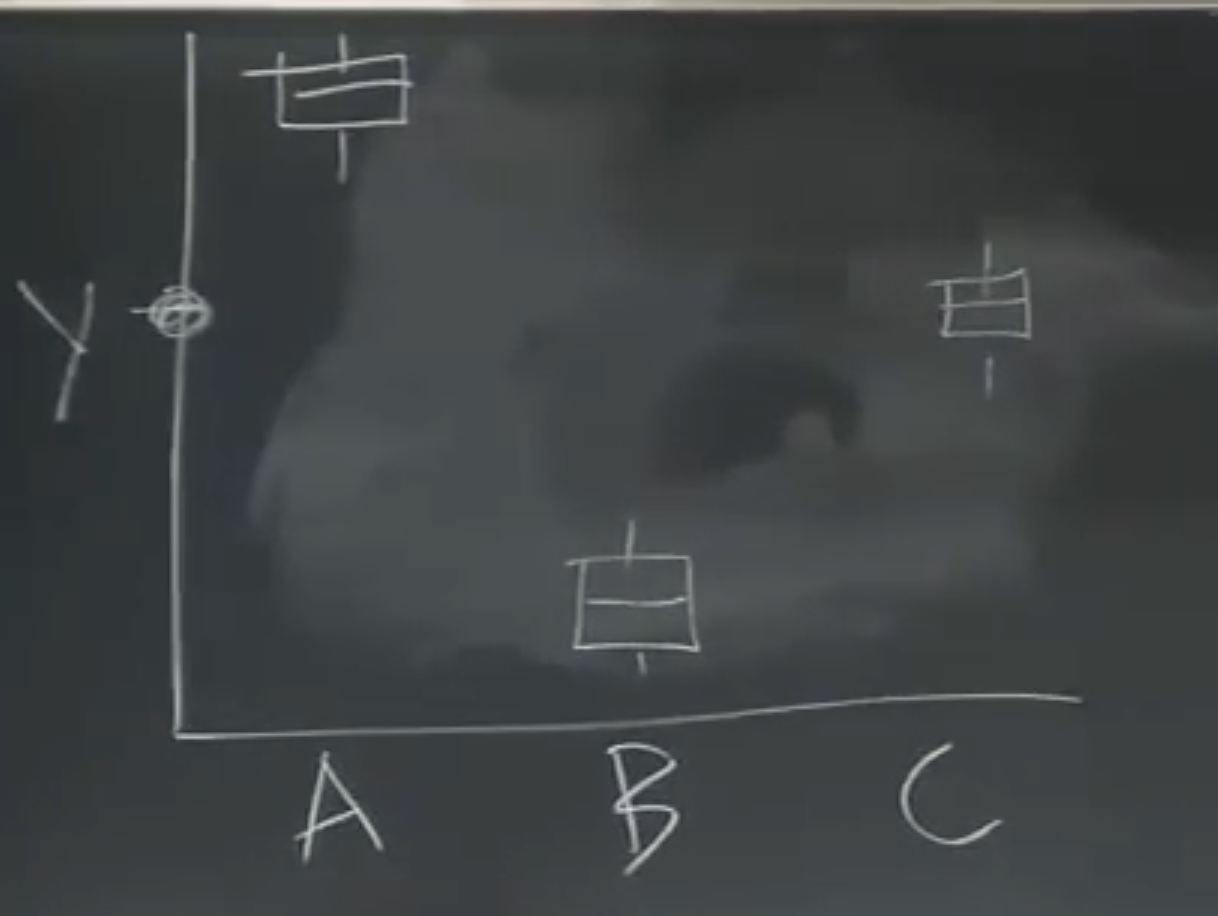 Y
A B C